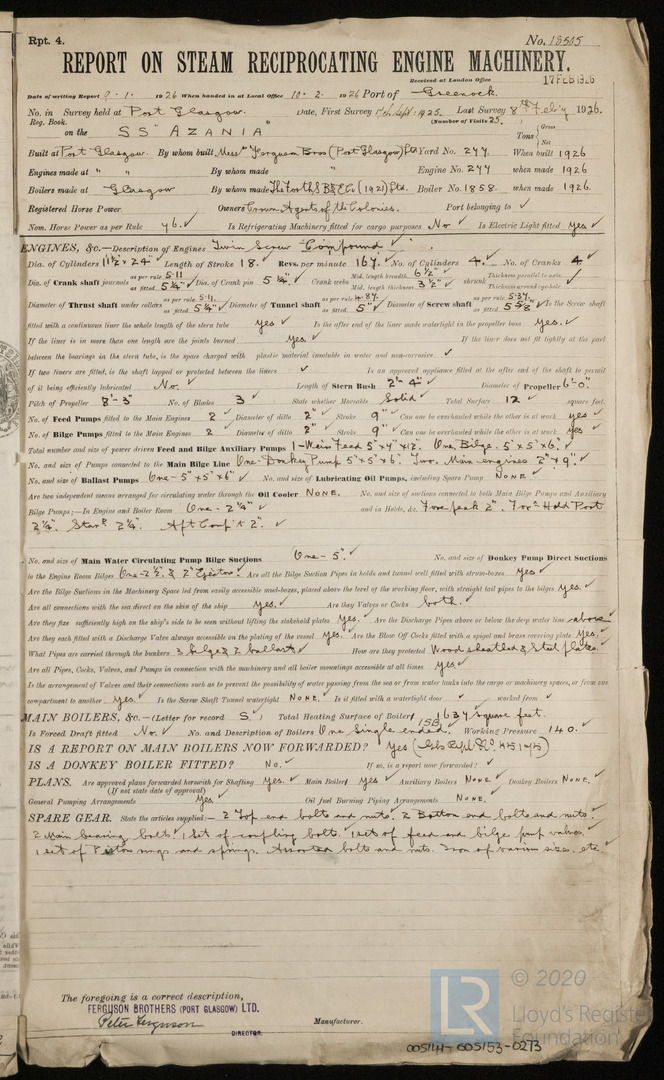 Rpt. 4.
No. 18505
REPORT ON STEAM RECIPROCATING ENGINE MACHINERY.
Received at London Office 17 FEB 1926
Date of writing Report 9. 1. 1926 When handed in at Local Office 10. 2. 1926 Port of Greenock.
No. in Reg. Book. Survey held at Port Glasgow. Date, First Survey Sept: 1925. Last Survey 8th Feb'y 1926.
(Number of Visits 25.)
on the SS "AZANIA" Tons { Gross Net
Built at Port Glasgow. By whom built Messrs Ferguson Bros (Port Glasgow) Ltd Yard No. 277. When built 1926
Engines made at " " By whom made " Engine No. 277 when made 1926
Boilers made at Glasgow By whom made The Forth S B & E Co (1921) Ltd. Boiler No. 1858. when made 1926.
Registered Horse Power Owners Crown Agents of the Colonies. Port belonging to
Nom. Horse Power as per Rule 46. Is Refrigerating Machinery fitted for cargo purposes No Is Electric Light fitted yes
ENGINES, &c.—Description of Engines Twin Screw "Compound".
Dia. of Cylinders 11½" × 24" Length of Stroke 18. Revs. per minute 167. No. of Cylinders 4. No. of Cranks 4
Dia. of Crank shaft journals as per rule 5.11 as fitted 5¼" Dia. of Crank pin 5¼" Crank webs Mid. length breadth 6½" Mid. length thickness 3½" shrunk Thickness parallel to axis Thickness around eye-hole
Diameter of Thrust shaft under collars as per rule 5.11. as fitted 5¼" Diameter of Tunnel shaft as per rule 4.87. as fitted 5" Diameter of Screw shaft as per rule 5.37. as fitted 5⅝ Is the Screw shaft
fitted with a continuous liner the whole length of the stern tube yes Is the after end of the liner made watertight in the propeller boss yes.
If the liner is in more than one length are the joints burned yes If the liner does not fit tightly at the part
between the bearings in the stern tube, is the space charged with plastic material insoluble in water and non-corrosive
If two liners are fitted, is the shaft lapped or protected between the liners Is an approved appliance fitted at the after end of the shaft to permit
of it being efficiently lubricated No. Length of Stern Bush 2'-4" Diameter of Propeller 6'-0"
Pitch of Propeller 8'-3" No. of Blades 3 State whether Moveable Solid Total Surface 12 square feet.
No. of Feed Pumps fitted to the Main Engines 2 Diameter of ditto 2" Stroke 9" Can one be overhauled while the other is at work yes
No. of Bilge Pumps fitted to the Main Engines 2 Diameter of ditto 2" Stroke 9" Can one be overhauled while the other is at work yes
Total number and size of power driven Feed and Bilge Auxiliary Pumps 1-Main Feed 5"×4"×12". One Bilge. 5"×5"×6".
No. and size of Pumps connected to the Main Bilge Line One-Donkey Pump 5"×5"×6". Two. Main engines 2"×9".
No. and size of Ballast Pumps One-5"×5"×6" No. and size of Lubricating Oil Pumps, including Spare Pump NONE
Are two independent means arranged for circulating water through the Oil Cooler NONE. No. and size of suctions connected to both Main Bilge Pumps and Auxiliary
Bilge Pumps;—In Engine and Boiler Room One-2¼" and in Holds, &c. Fore peak 2". For'd Hold Port
2¼". Starb'd 2¼. Aft Comp't 2".
No. and size of Main Water Circulating Pump Bilge Suctions One-5". No. and size of Donkey Pump Direct Suctions
to the Engine Room Bilges One-2½" & 2" Ejector. Are all the Bilge Suction Pipes in holds and tunnel well fitted with strum-boxes yes
Are the Bilge Suctions in the Machinery Space led from easily accessible mud-boxes, placed above the level of the working floor, with straight tail pipes to the bilges yes.
Are all connections with the sea direct on the skin of the ship yes. Are they Valves or Cocks both.
Are they fixed sufficiently high on the ship's side to be seen without lifting the stokehold plates yes. Are the Discharge Pipes above or below the deep water line above
Are they each fitted with a Discharge Valve always accessible on the plating of the vessel yes. Are the Blow Off Cocks fitted with a spigot and brass covering plate yes.
What Pipes are carried through the bunkers 3 bilge & 2 ballast How are they protected Wood sheathed & Steel plate.
Are all Pipes, Cocks, Valves, and Pumps in connection with the machinery and all boiler mountings accessible at all times yes
Is the arrangement of Valves and their connections such as to prevent the possibility of water passing from the sea or from water tanks into the cargo or machinery spaces, or from one
compartment to another yes. Is the Screw Shaft Tunnel watertight NONE. Is it fitted with a watertight door worked from
MAIN BOILERS, &c.—(Letter for record S.) Total Heating Surface of Boilers 1637 square feet.
Is Forced Draft fitted No. No. and Description of Boilers One single ended. 15B Working Pressure 140.
IS A REPORT ON MAIN BOILERS NOW FORWARDED? yes
IS A DONKEY BOILER FITTED? No. If so, is a report now forwarded?
PLANS. Are approved plans forwarded herewith for Shafting yes. Main Boilers yes Auxiliary Boilers NONE Donkey Boilers NONE.
(If not state date of approval)
General Pumping Arrangements yes Oil fuel Burning Piping Arrangements NONE.
SPARE GEAR. State the articles supplied:— 2 Top end bolts and nuts. 2 Bottom end bolts and nuts.
2 Main bearing bolts. 1 Set of coupling bolts. 1 set of feed and bilge pump valves.
1 set of Piston rings and springs. Assorted bolts and nuts. Iron of various sizes. etc
The foregoing is a correct description,
FERGUSON BROTHERS (PORT GLASGOW) LTD.
Peter Ferguson
DIRECTOR.
Manufacturer.
LR © 2020
Lloyd's Register
Foundation
005141-005153-0273